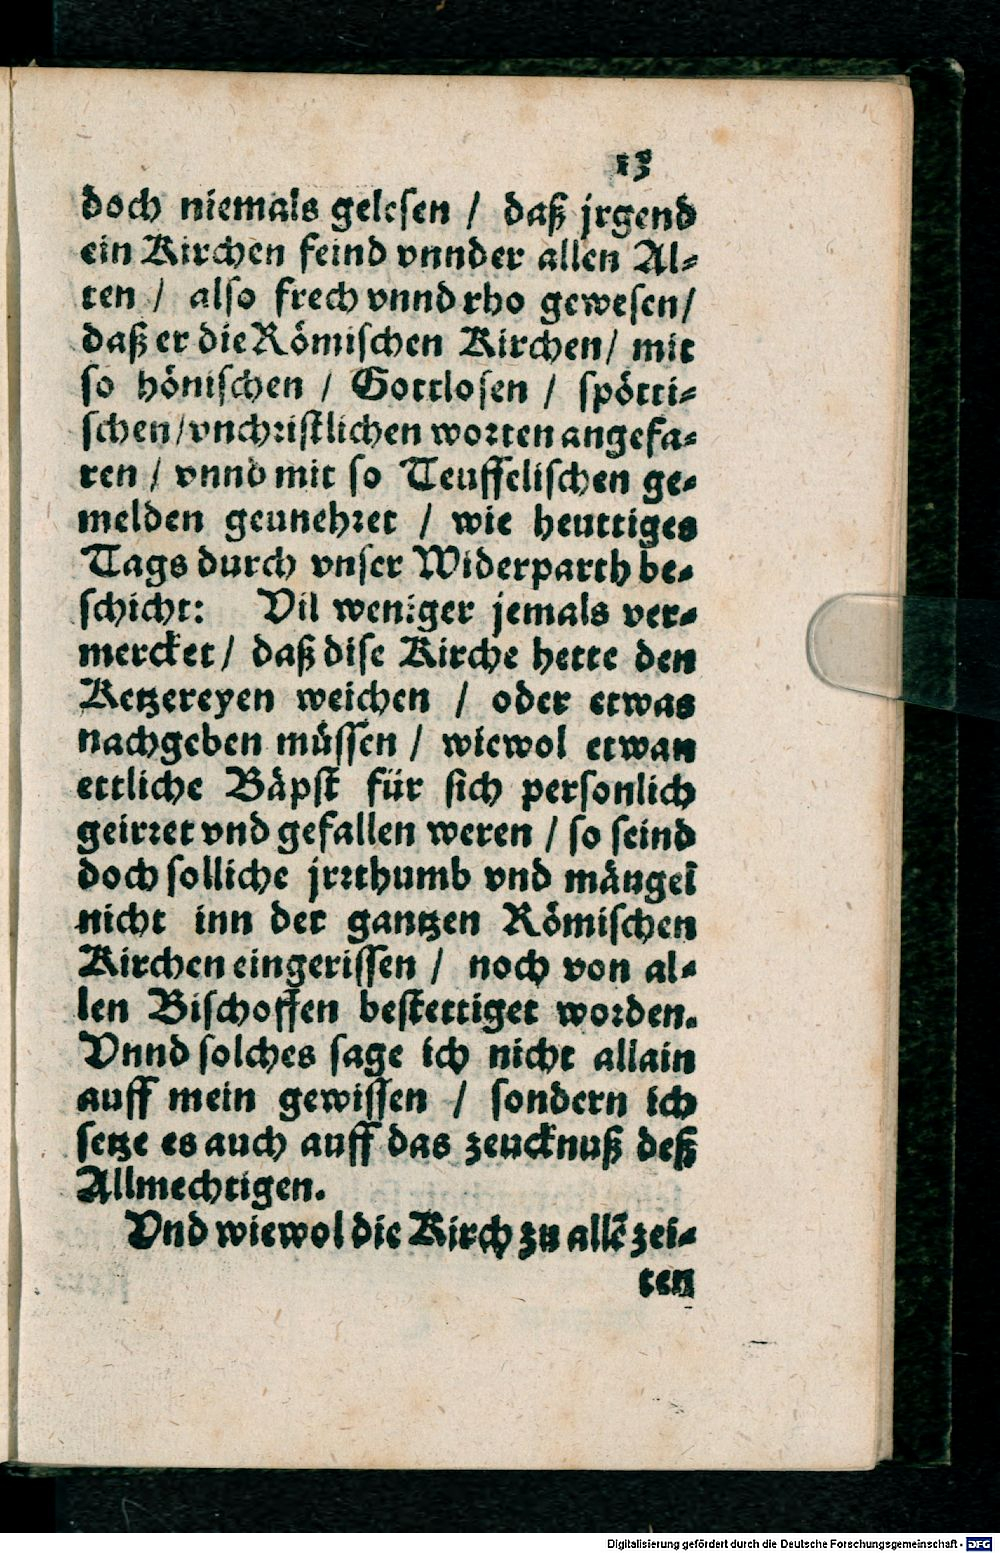 13
doch niemals gelesen / daß jrgend
ein Kirchen feind vnnder allen Al⸗
ten / also frech vnnd rho gewesen /
daß er die Römischen Kirchen / mit
so hönischen / Gottlosen / spötti⸗
schen / vnchristlichen worten angefa⸗
ren / vnnd mit so Teuffelischen ge⸗
melden geunehret / wie heuttiges
Tags durch vnser Widerparth be⸗
schicht: Vil weniger jemals ver⸗
mercket / daß dise Kirche hette den
Ketzereyen weichen / oder etwas
nachgeben müssen / wiewol etwan
ettliche Bäpst für sich personlich
geirret vnd gefallen weren / so seind
doch solliche jrrthumb vnd mängel
nicht inn der gantzen Römischen
Kirchen eingerissen / noch von al⸗
len Bischoffen bestettiget worden.
Vnnd solches sage ich nicht allain
auff mein gewissen / sondern ich
setze es auch auff das zeucknuß deß
Allmechtigen.
Vnd wiewol die Kirch zu allē zei⸗
ten
Digitalisierung gefördert durch die Deutsche Forschungsgemeinschaft - DFG